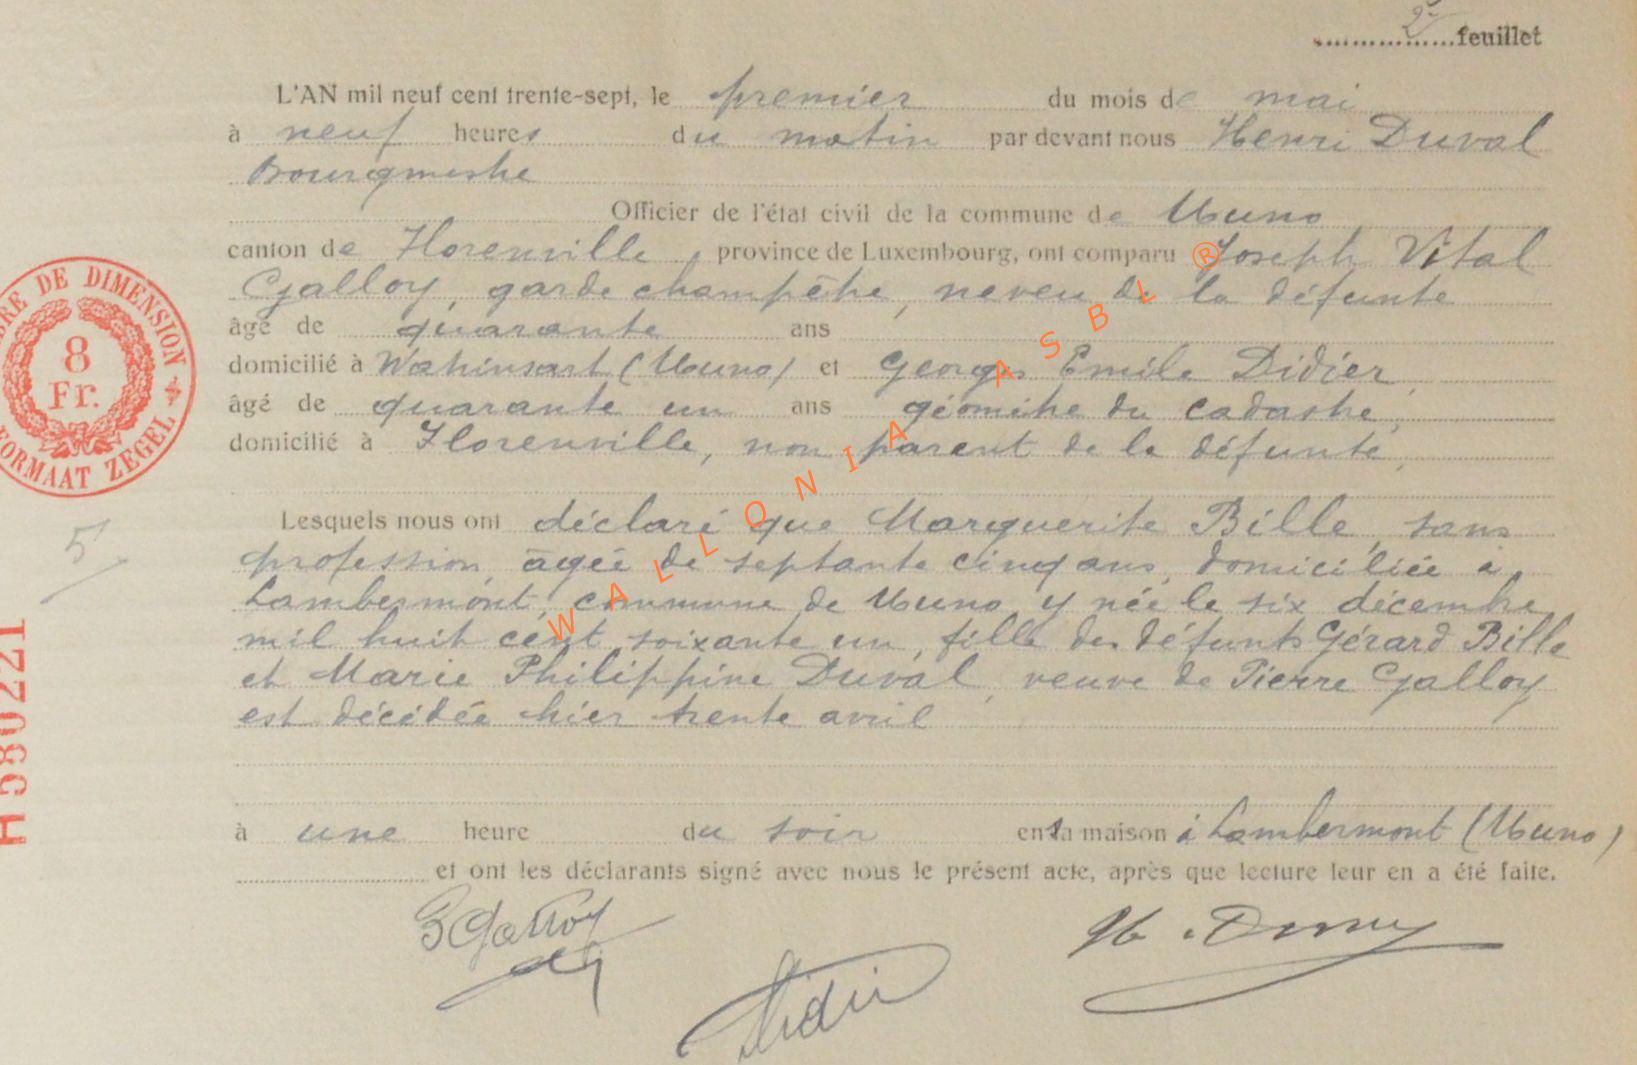 2e feuillet
L'AN mil neuf cent trente-sept, le premier du mois de mai
à neuf heures du matin par devant nous Henri Duval
Bourgmestre
Officier de l'état civil de la commune de Muno
canton de Florenville, province de Luxembourg, ont comparu Joseph Vital
Galloy, garde champêtre, neveu de la défunte
âgé de quarante ans
domicilié à Wathinsart (Muno) et Georges Emile Didier,
âgé de quarante un ans géomètre du cadastre,
domicilié à Florenville, non parent de la défunte,
Lesquels nous ont déclaré que Marguerite Bille, sans
profession, âgée de septante cinq ans, domiciliée à
Lambermont, commune de Muno, y née le six décembre
mil huit cent soixante un, fille des défunts Gérard Bille
et Marie Philippine Duval, veuve de Pierre Galloy
est décédée hier trente avril
à une heure du soir en sa maison à Lambermont (Muno)
et ont les déclarants signé avec nous le présent acte, après que lecture leur en a été faite.
Galloy
Didier
BRE DE DIMENSION
8
Fr.
FORMAAT ZEGEL
5
H580221
® WALLONIA ASBL